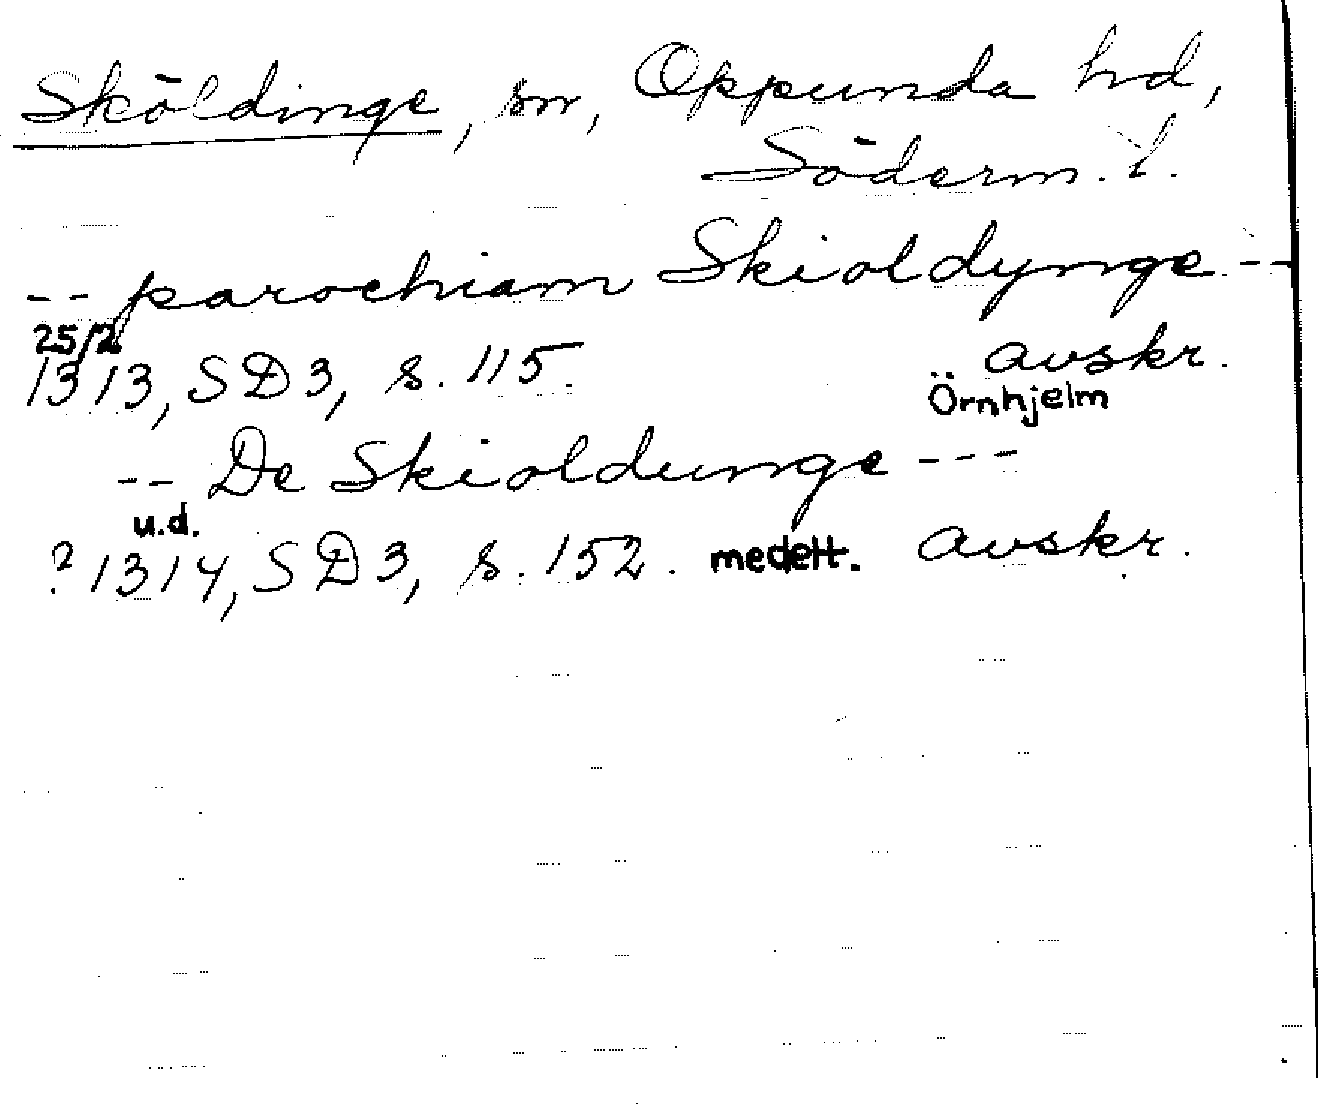 Sköldinge, sn, Oppunda hd,
Söderm. l.
-- parochiam Skioldynge --
25/2
1313, SD3, s. 115. avskr.
Örnhjelm
-- De Skioldunge ---
u.d.
? 1314, SD3, s. 152. medelt. avskr.